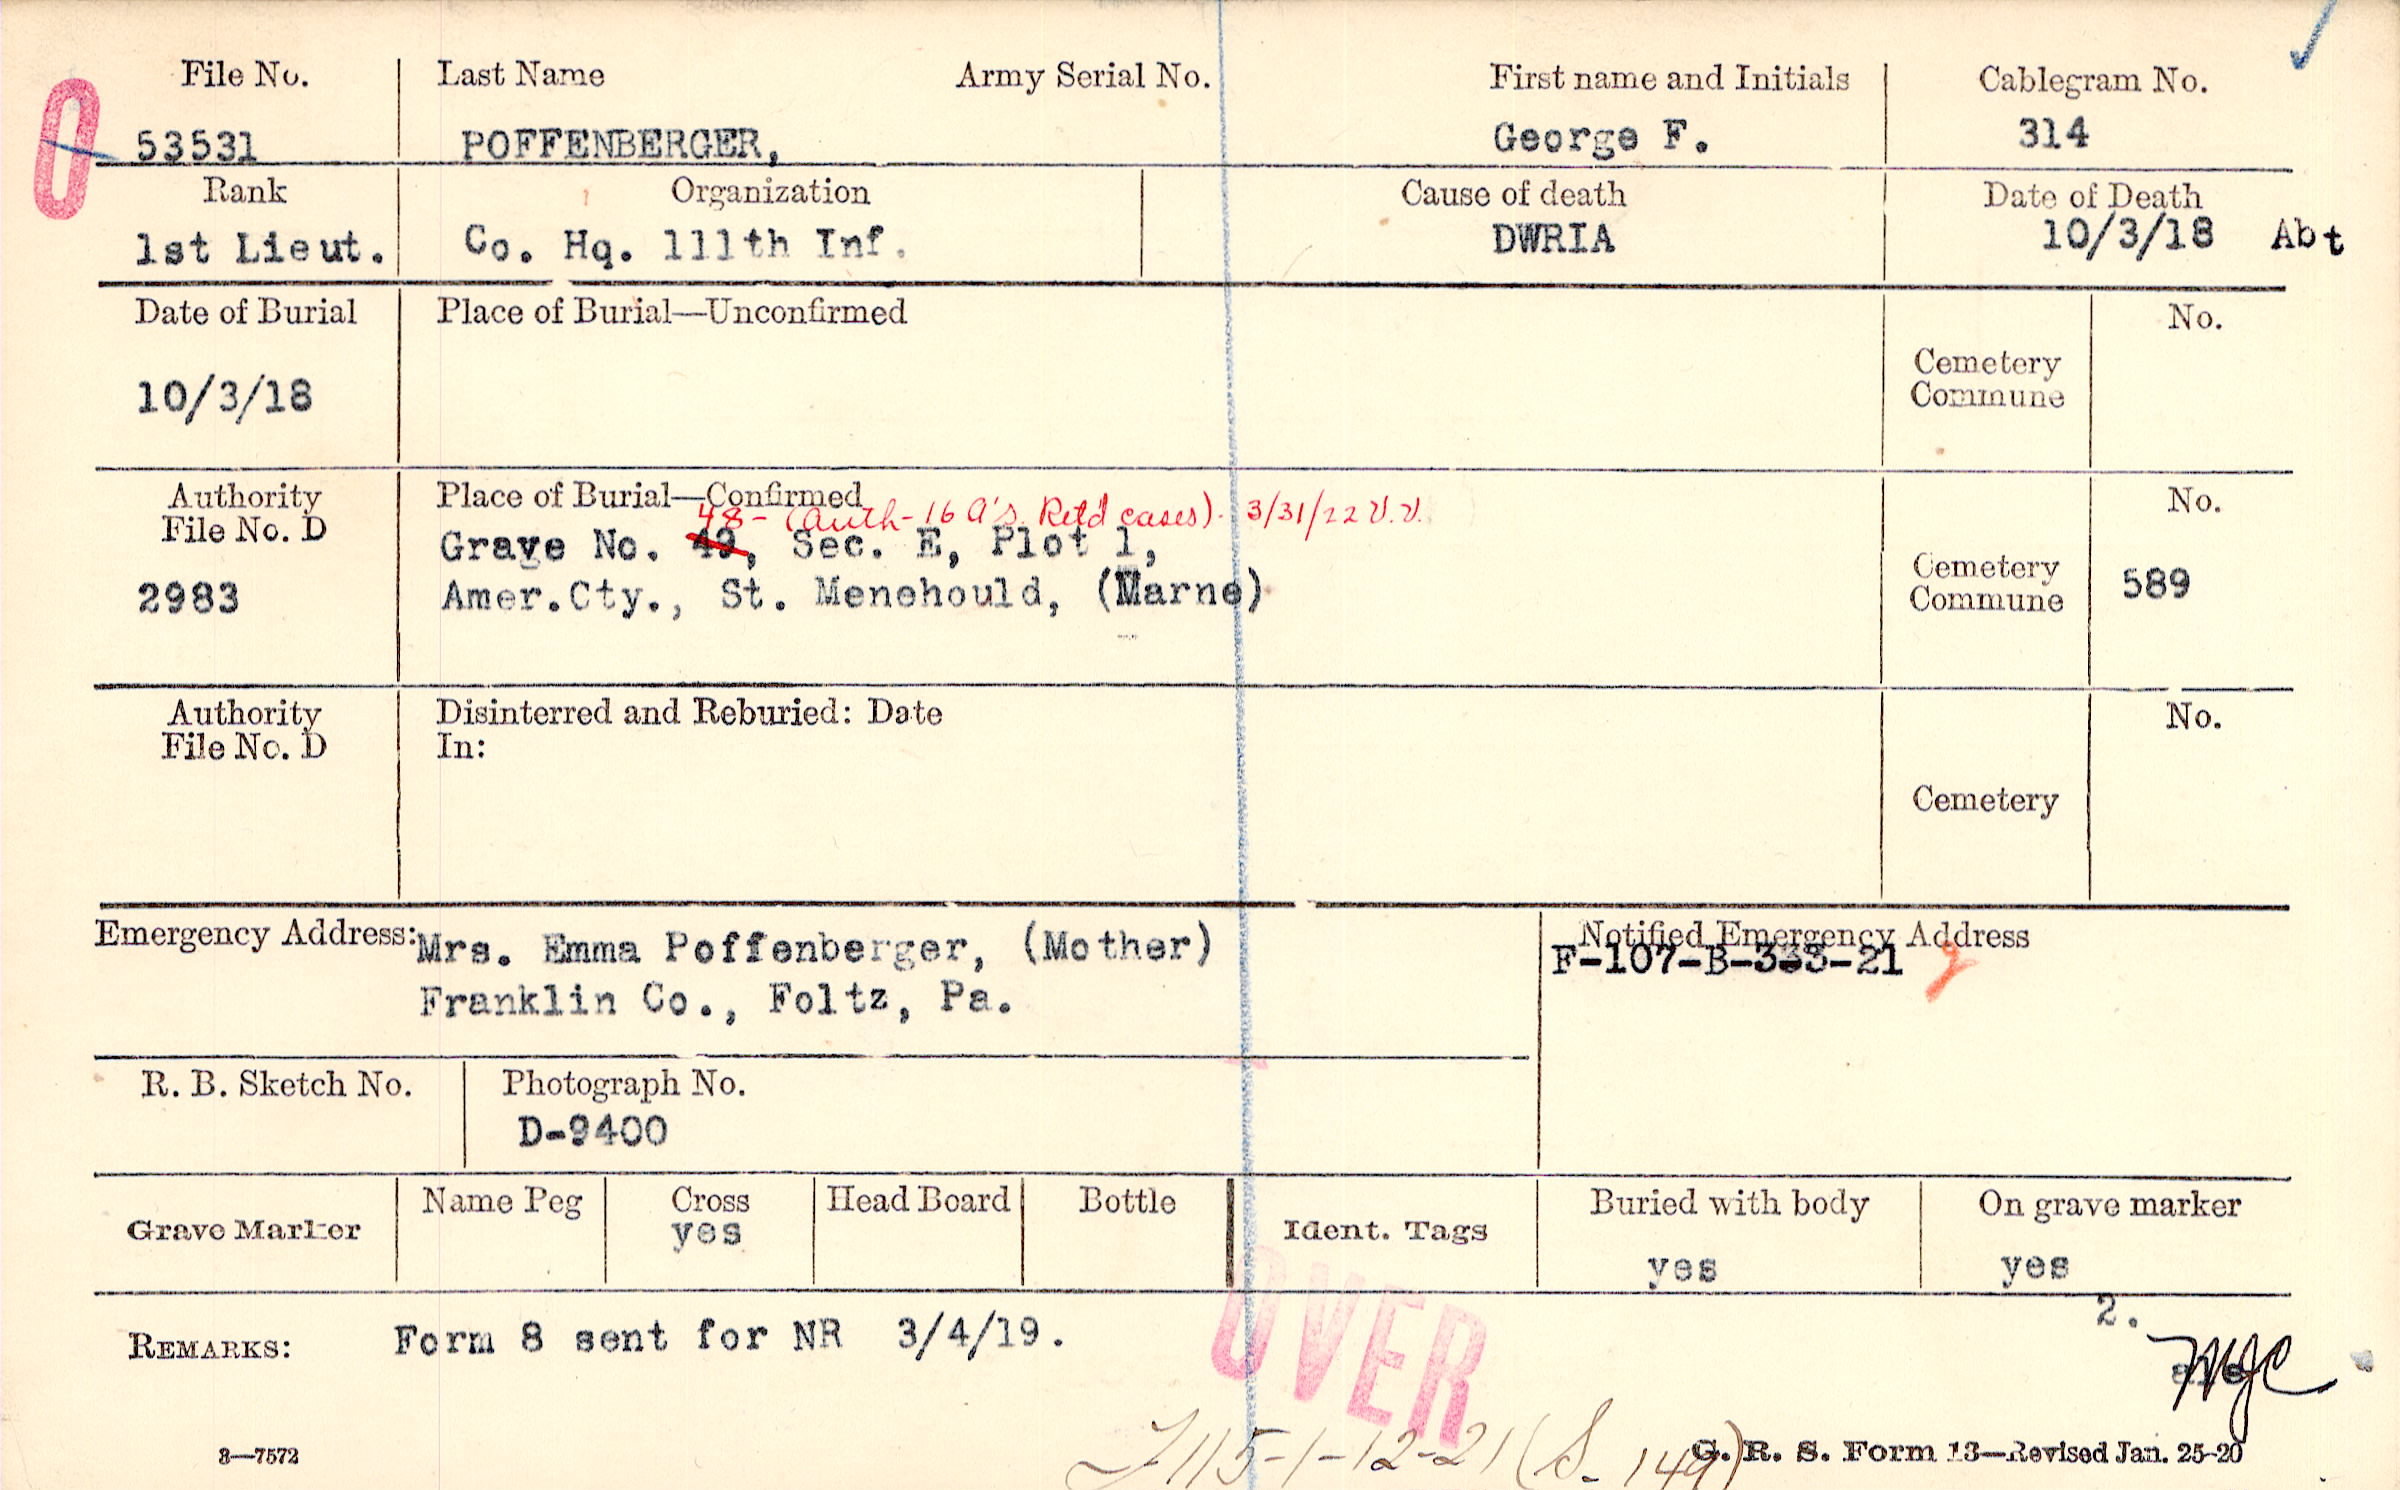 File No. Last Name Army Serial No. First name and Initials Cablegram No.
O
53531 POFFENBERGER, George F. 314
Rank Organization Cause of death Date of Death
1st Lieut. Co. Hq. 111th Inf. DWRIA 10/3/18 Abt
Date of Burial Place of Burial—Unconfirmed No.
10/3/18 Cemetery
Commune
Authority Place of Burial—Confirmed No.
48- (Auth-16 A's Retd cases). 3/31/22 V.V.
File No. D Grave No. 49, Sec. E, Plot 1,
Cemetery
2983 Amer.Cty., St. Menehould, (Marne) Commune 589
Authority Disinterred and Reburied: Date No.
File No. D In:
Cemetery
Emergency Address: Mrs. Emma Poffenberger, (Mother) Notified Emergency Address
F-107-B-333-21
Franklin Co., Foltz, Pa.
R. B. Sketch No. Photograph No.
D-9400
Grave Marker Name Peg Cross Head Board Bottle Ident. Tags Buried with body On grave marker
yes yes yes
2.
REMARKS: Form 8 sent for NR 3/4/19.
OVER
MJC
3—7572 G. R. S. Form 13—Revised Jan. 25-20
115-1-12-21 (S. 149)